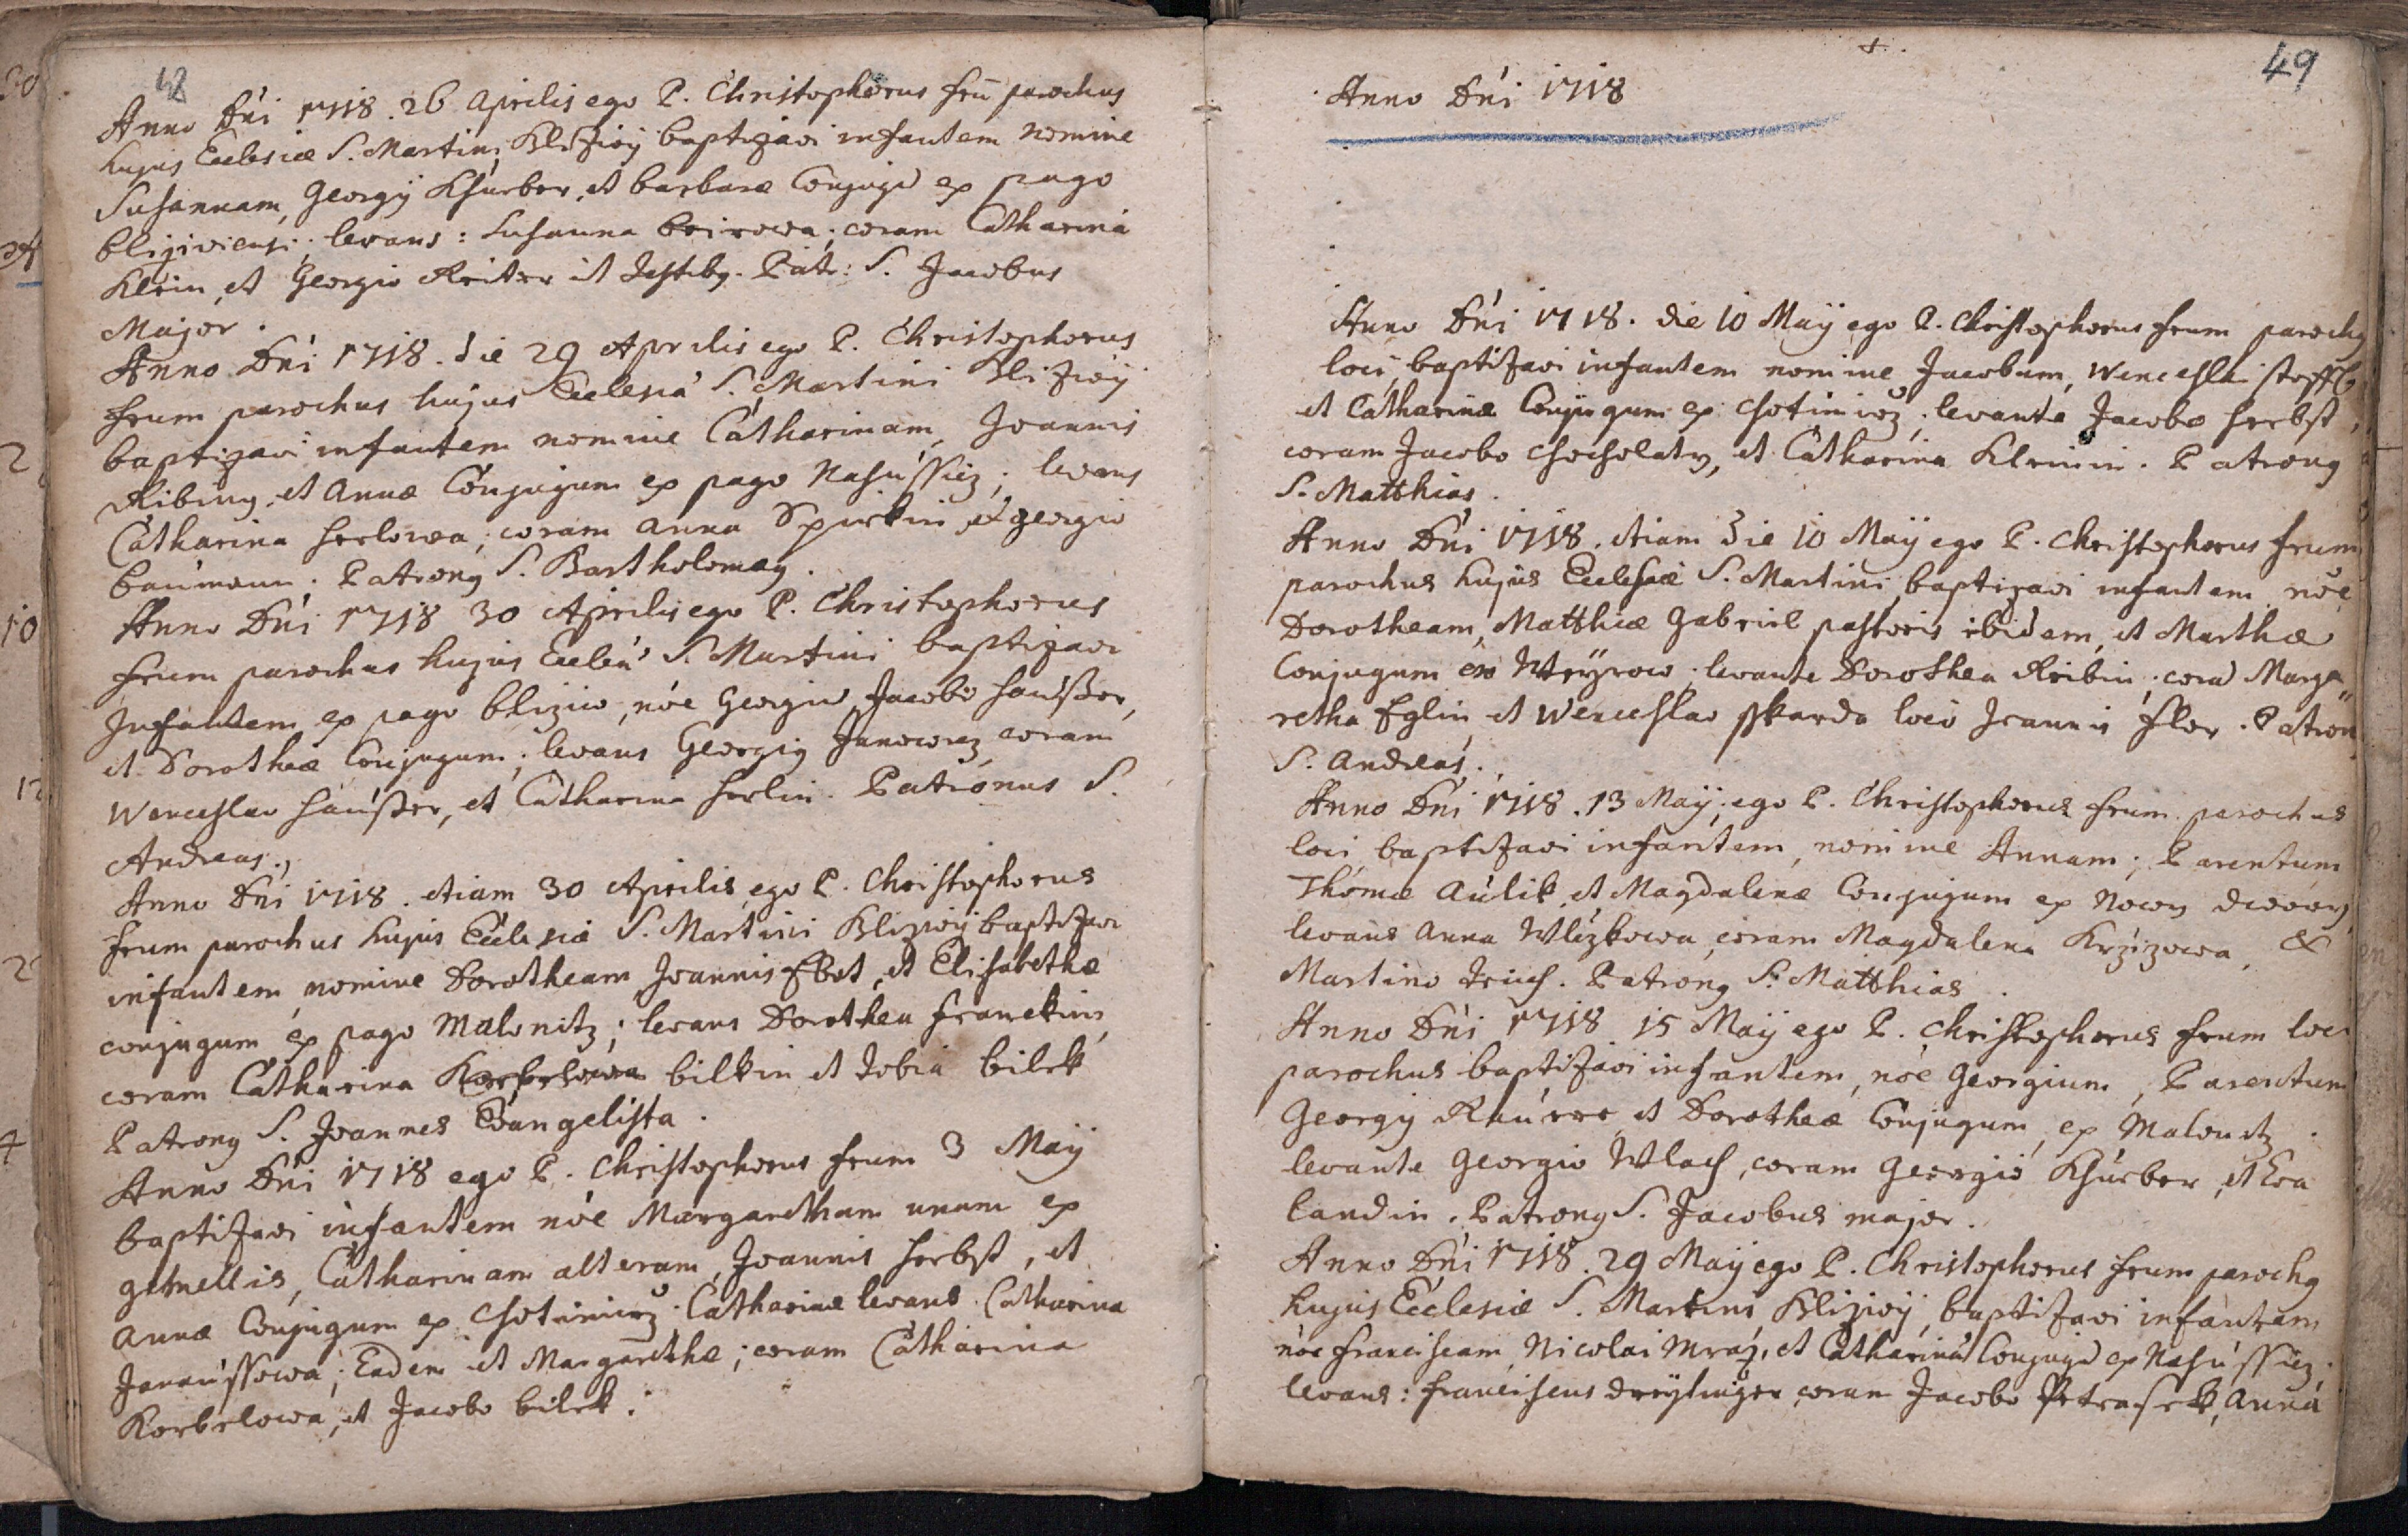 48
Anno Dni 1718. 26 Aprilis ego P. Christophorus frū parochus
hujus Ecclesiæ S. Martini Blizivÿ baptizavi infantem nomine
Susannam, Georgÿ Khürber, et barbaræ Conjugū ex pago
bliziviensi; levans: Susanna beirowa; coram Catharina
Klein, et Georgio Reiter ut Testibg. Patr: S. Jacobus
Major.
Anno Dni 1718. die 29 Aprilis ego P. Christophorus
frum parochus hujus Ecclesiæ S. Martini Blizivÿ
baptizavi infantem nomine Catharinam, Joannis
Ribing, et Annæ Conjugum ex pago Nahussicz; levans
Catharina herlowa; coram Anna Spirkin, et georgio
baumann. Patrong S. Bartholomæg.
Anno Dni 1718 30 Aprilis ego P. Christophorus
frum parochus hujus Eccliæ S. Martini baptizavi
Infantem ex pago bliziw, nōe Georgiū, Jacobi haüßer,
et Dorotheæ Conjugum; levans Georgig Janowecz coram
Wenceslao haüßer, et Catharina herlin. Patronus S.
Andreas.
Anno Dni 1718. etiam 30 Aprilis, ego P. Christophorus
frum parochus hujus Ecclesiæ S. Martini Blizivÿ baptizavi
infantem, nomine Dorotheam Joannis Ebet, et Elisabethæ
conjugum ex pago Malonitz; levans Dorothea franckin,
coram Catharina bilkin et Tobia bilek
Patrong S. Joannes Evangelista.
Anno Dni 1718 ego P. Christophorus frum 3 Maÿ
baptizavi infantem nōe Margaretham unam ex
gemellis, Catharinam alteram, Joannis herbst, et
Annæ Conjugum ex Chotimirz. Catharinæ levans Catharina
Janaüssowa; Eadem et Margarethæ; coram Catharina
Korbelowa, et Jacobo bilek.
49
Anno Dni 1718
Anno Dni 1718. die 10 Maÿ ego P. Christophorus frum parochg
loci, baptizavi infantem nomine Jacobum, Wenceslai stoffl,
et Catharinæ Conjugum ex Chotimirz; levante Jacobo herbst,
coram Jacobo Chocholaty, et Catharina Kleinin. Patrong
S. Matthias.
Anno Dni 1718. etiam die 10 Maÿ ego P. Christophorus frum
parochus hujus Ecclesiæ S. Martini, baptizavi infantem nōe
Dorotheam, Matthiæ Gabriel pastoris ibidem, et Marthæ
Conjugum ex Weÿrow; levante Dorothea Reibin; corā Marga"
retha Eglin, et Wenceslao skarda loco Joannis flor. Patron
S. Andreas.
Anno Dni 1718. 13 Maÿ; ego P. Christophorus frum parochus
loci baptizavi infantem, nomine Annam; Parentum
Thomæ Aulik, et Magdalenæ Conjugum ex Nowy dwory,
levans Anna Wlizkowa, coram Magdalena Krzizowa, &
Martino Patrong S. Matthias.
Anno Dni 1718 15 Maÿ ego P. Christophorus frum loci
parochus baptizavi infantem, nōe Georgium, Parentum
Georgÿ et Dorotheæ Conjugum, ex Malonitz.
levante Georgio Wlach, coram Georgio Khürber, et Eva
landin. Patrong S. Jacobus major.
Anno Dni 1718. 29 Maÿ ego P. Christophorus frum parochg
hujus Ecclesiæ S. Martini Blizivÿ, baptizavi infantem
nōe franciscam, Nicolai Mraz, et Catharinæ Conjugū ex Nahüssicz;
levans: franciscus dreÿlinger, coram Jacobo Petrasek, Anna